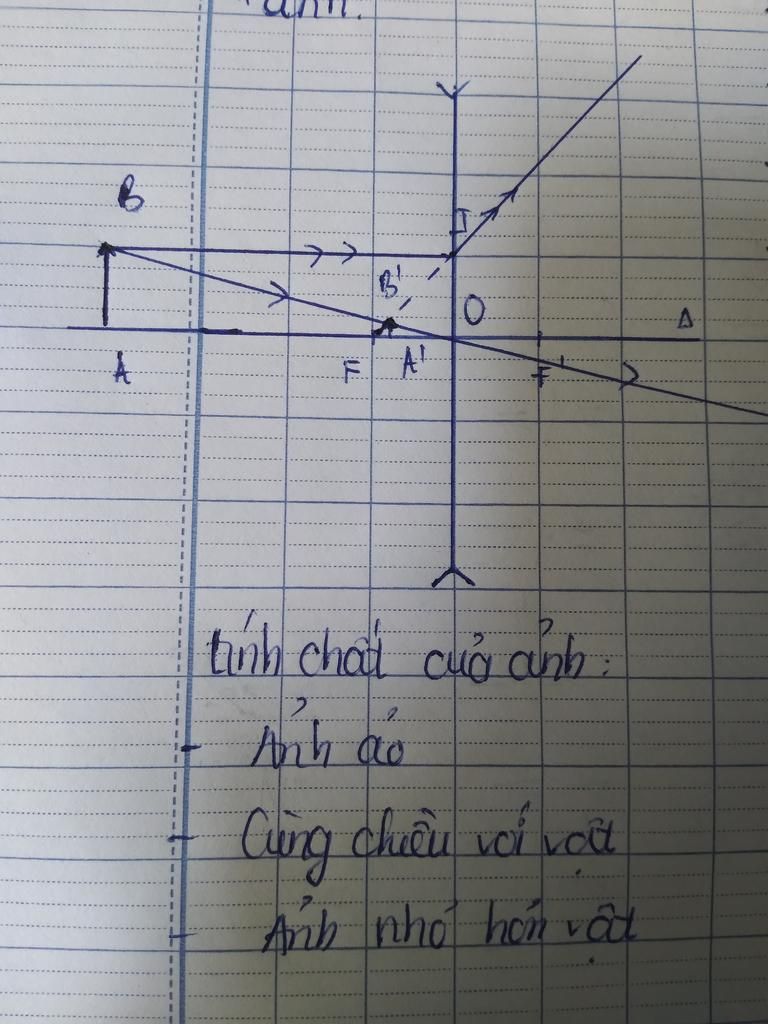 ảnh.
B
I
B'
O
Δ
A
F
A'
F'
tính chất của ảnh:
- Ảnh ảo
- Cùng chiều với vật
- Ảnh nhỏ hơn vật